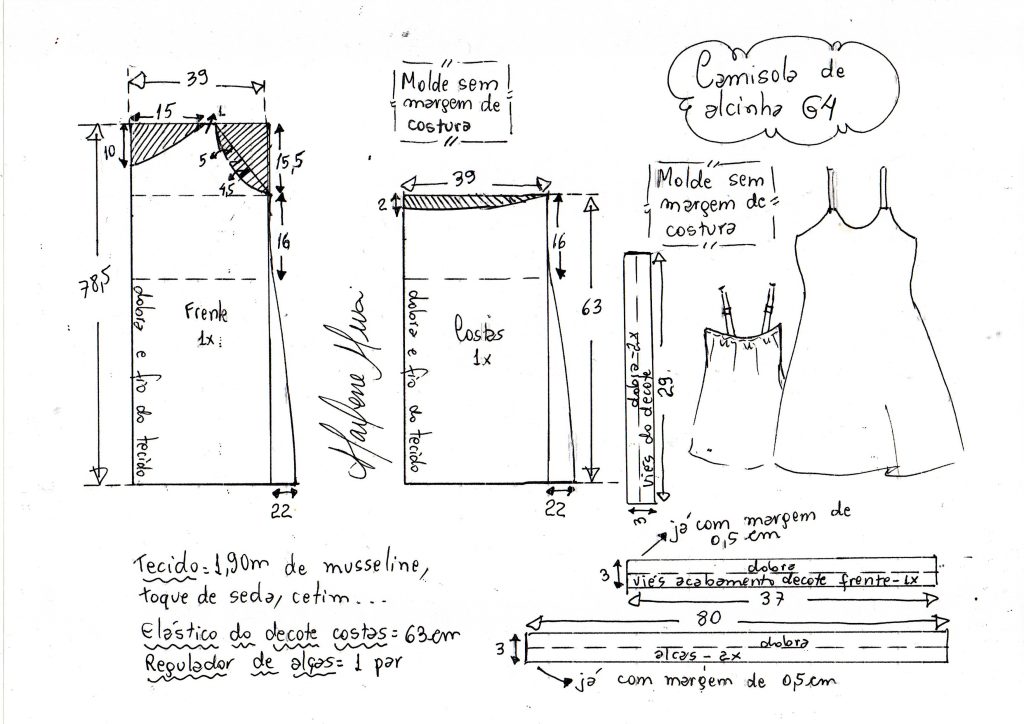 Camisola de
alcinha G4
Molde sem
margem de
costura
Molde sem
margem de
costura
39
15
1
10
5
4,5
15,5
16
78,5
Frente
1x
dobra e fio do tecido
22
39
2
16
63
Costas
1x
dobra e fio do tecido
22
Marlene Mukai
dobra-2x
viés do decote
29
3
já com margem de
0,5 cm
3
dobra
viés acabamento decote frente-1x
37
80
3
dobra
alças-2x
já com margem de 0,5cm
Tecido=1,90m de musseline,
toque de seda, cetim...
Elástico do decote costas=63cm
Regulador de alças=1 par